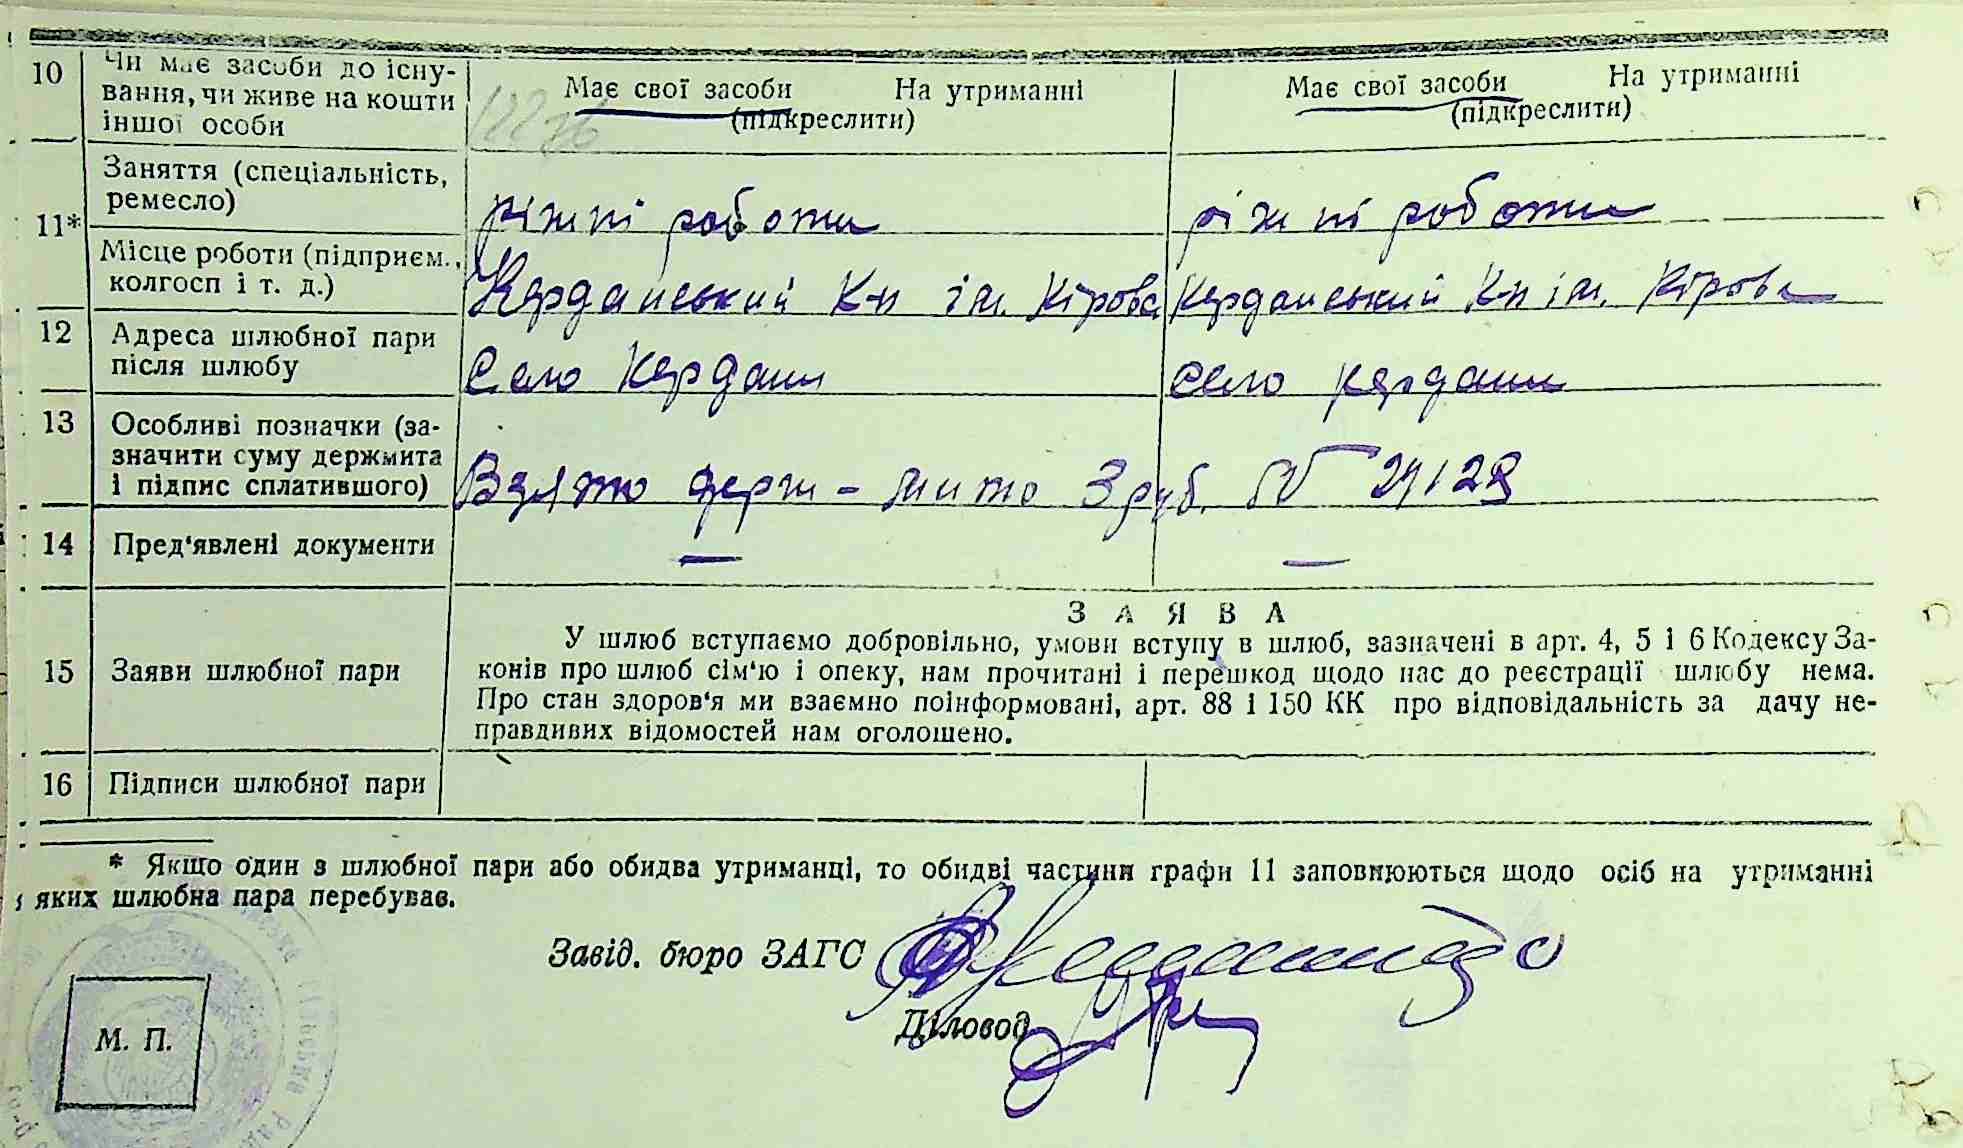 10
Чи має засоби до існу-
вання, чи живе на кошти
іншої особи
Має свої засоби На утриманні
(підкреслити)
Має свої засоби На утриманні
(підкреслити)
11*
Заняття (спеціальність,
ремесло)
ріжні роботи
ріжні роботи
Місце роботи (підприєм.,
колгосп і т. д.)
Керданський К-п ім. Кірова
Керданський К-п ім. Кірова
12
Адреса шлюбної пари
після шлюбу
Село Кердани
село Кердани
13
Особливі позначки (за-
значити суму держмита
і підпис сплатившого)
Взято держ-мито 3 руб.
14
Пред‘явлені документи
—
—
15
Заяви шлюбної пари
ЗАЯВА
У шлюб вступаємо добровільно, умови вступу в шлюб, зазначені в арт. 4, 5 і 6 Кодексу За-
конів про шлюб сім‘ю і опеку, нам прочитані і перешкод щодо нас до реєстрації шлюбу нема.
Про стан здоров‘я ми взаємно поінформовані, арт. 88 і 150 КК про відповідальність за дачу не-
правдивих відомостей нам оголошено.
16
Підписи шлюбної пари
* Якщо один з шлюбної пари або обидва утриманці, то обидві частини графи 11 заповнюються щодо осіб на утриманні
яких шлюбна пара перебував.
Завід. бюро ЗАГС
Діловод
М. П.